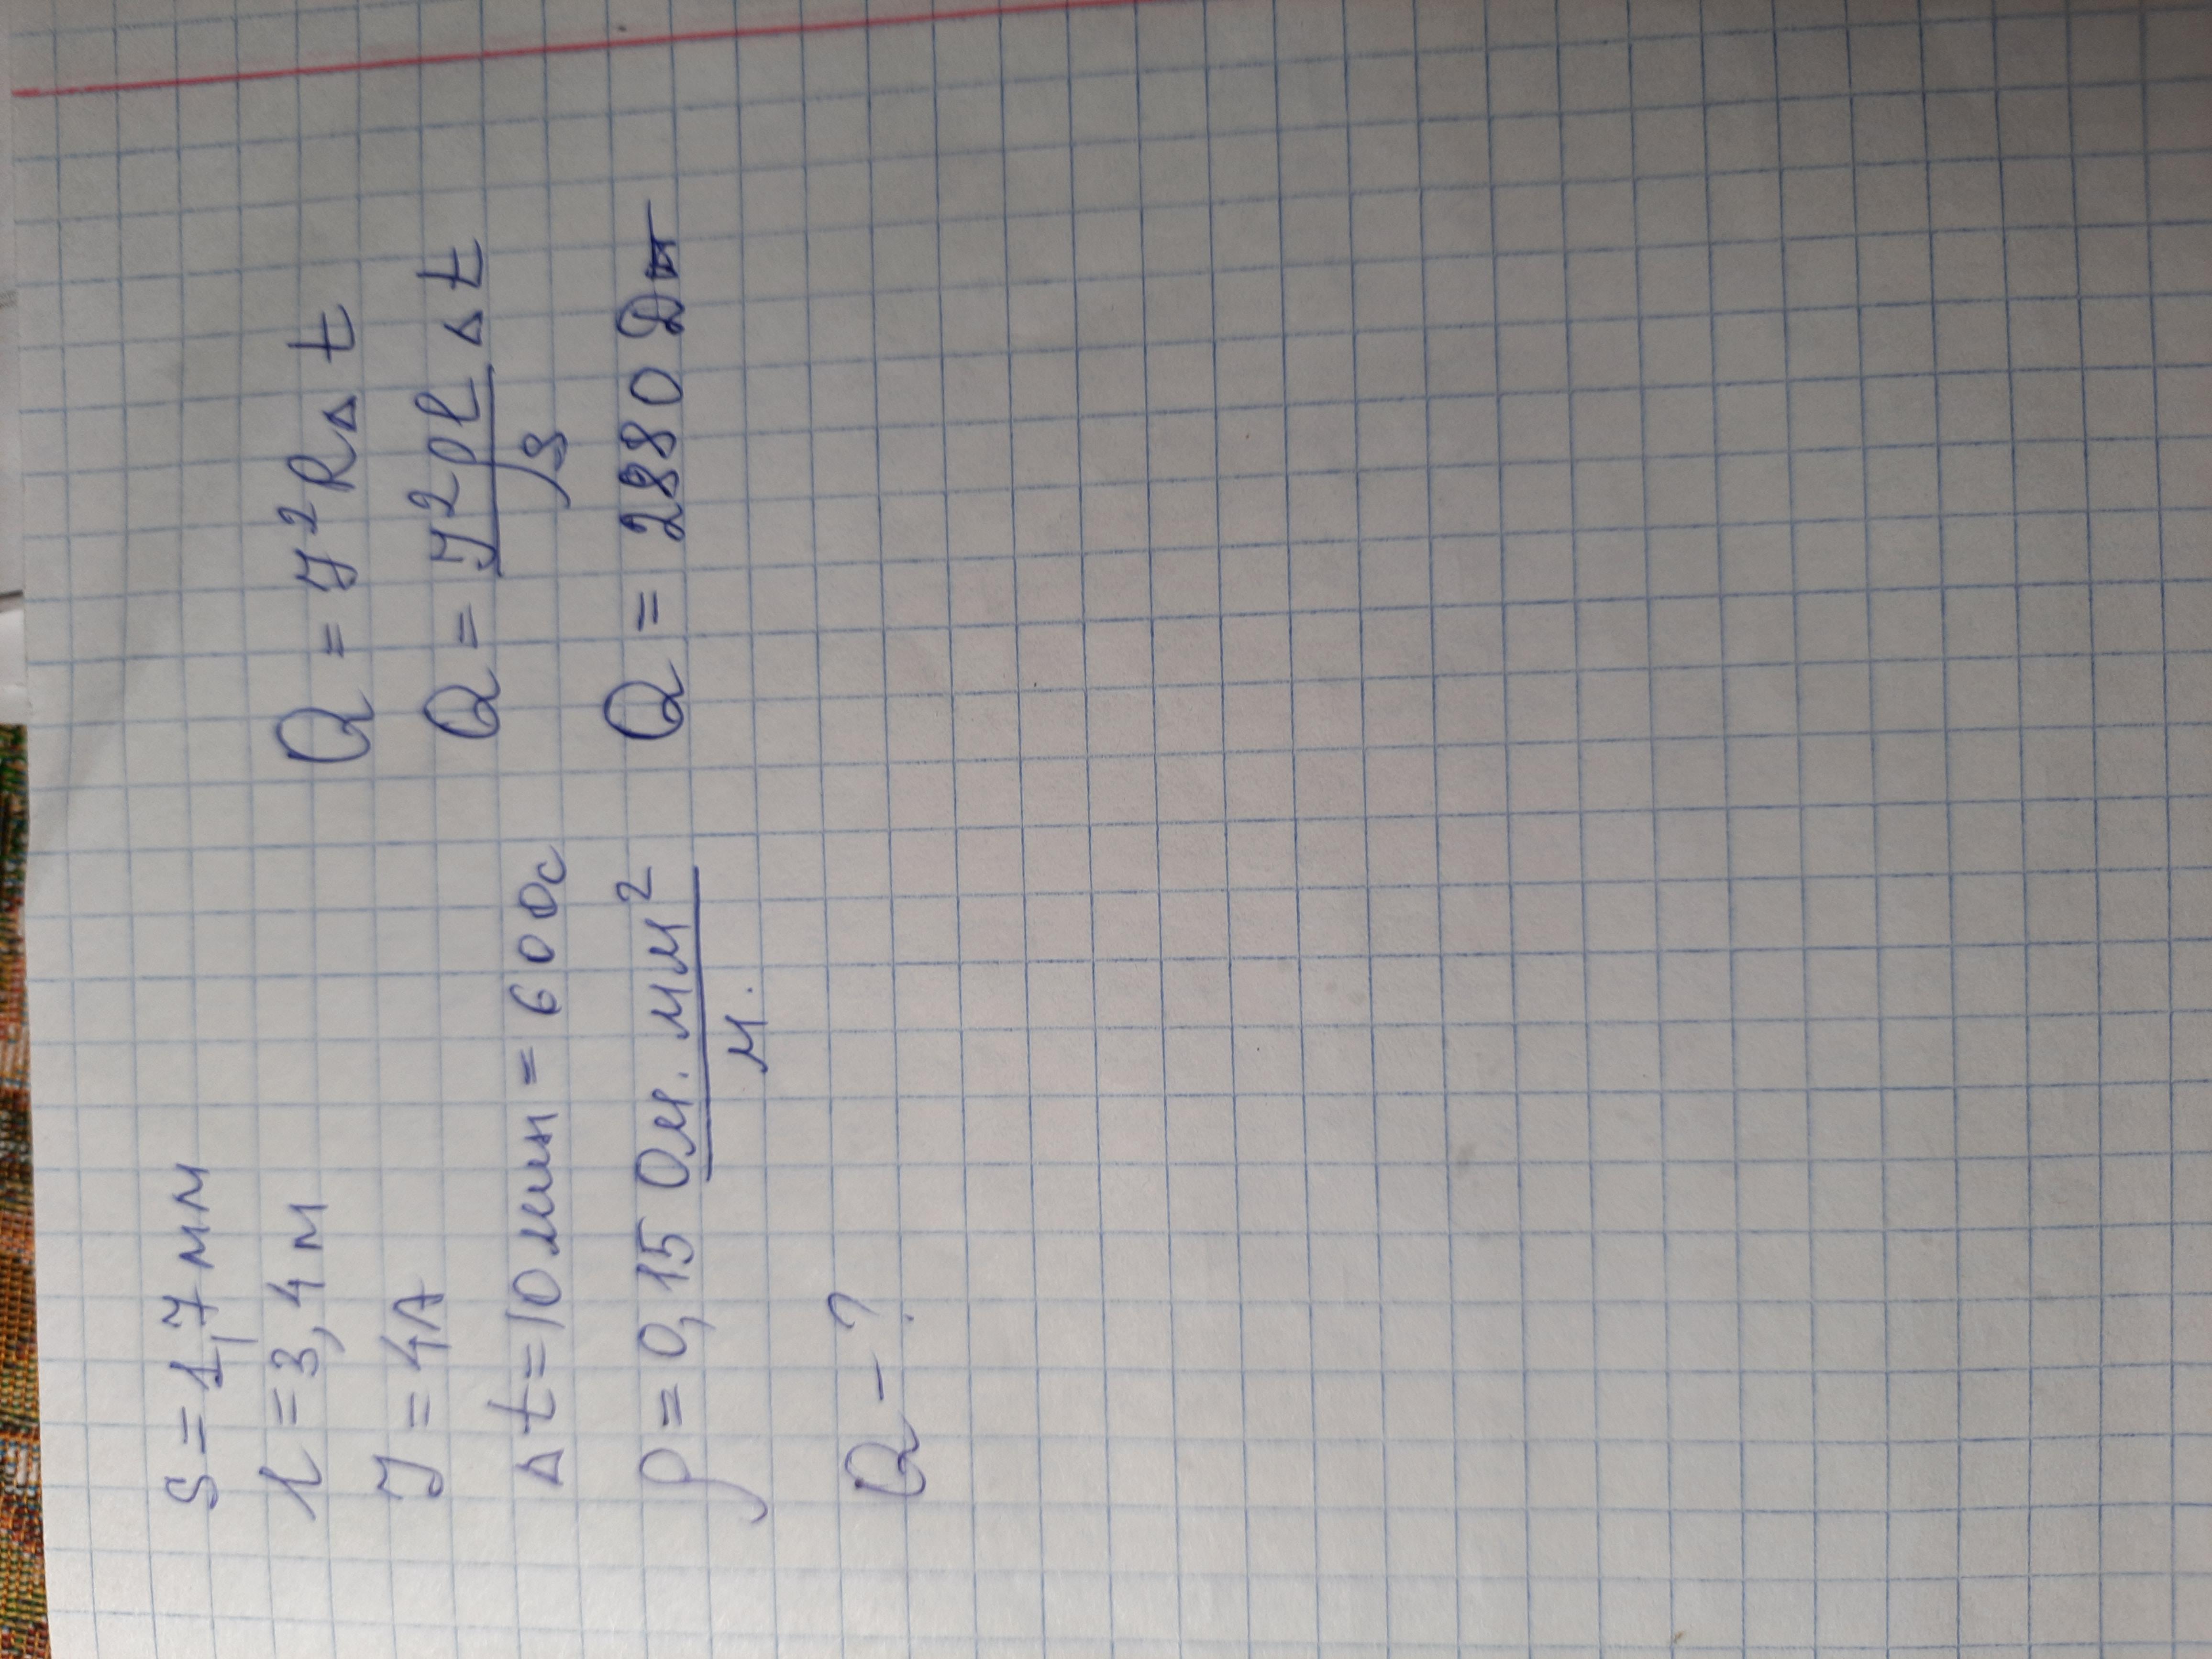 S = 1,7 мм
l = 3,4 м
I = 4А
Δt = 10 мин = 600с
ρ = 0,15 Ом. мм²
м.
Q - ?
Q = I²RΔt
Q = I²ρl Δt
S
Q = 2880 Дж